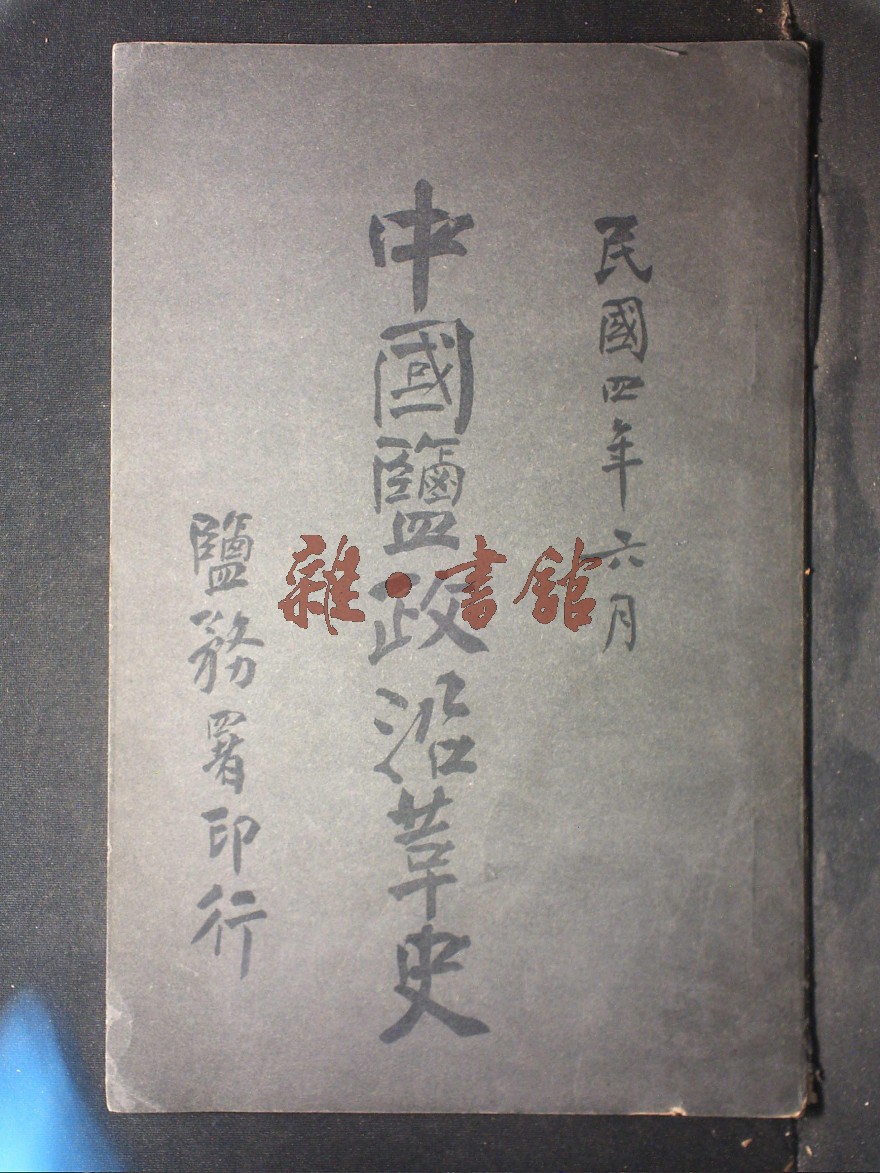 民國四年六月
中國鹽政沿革史
鹽務署印行
雜·書館